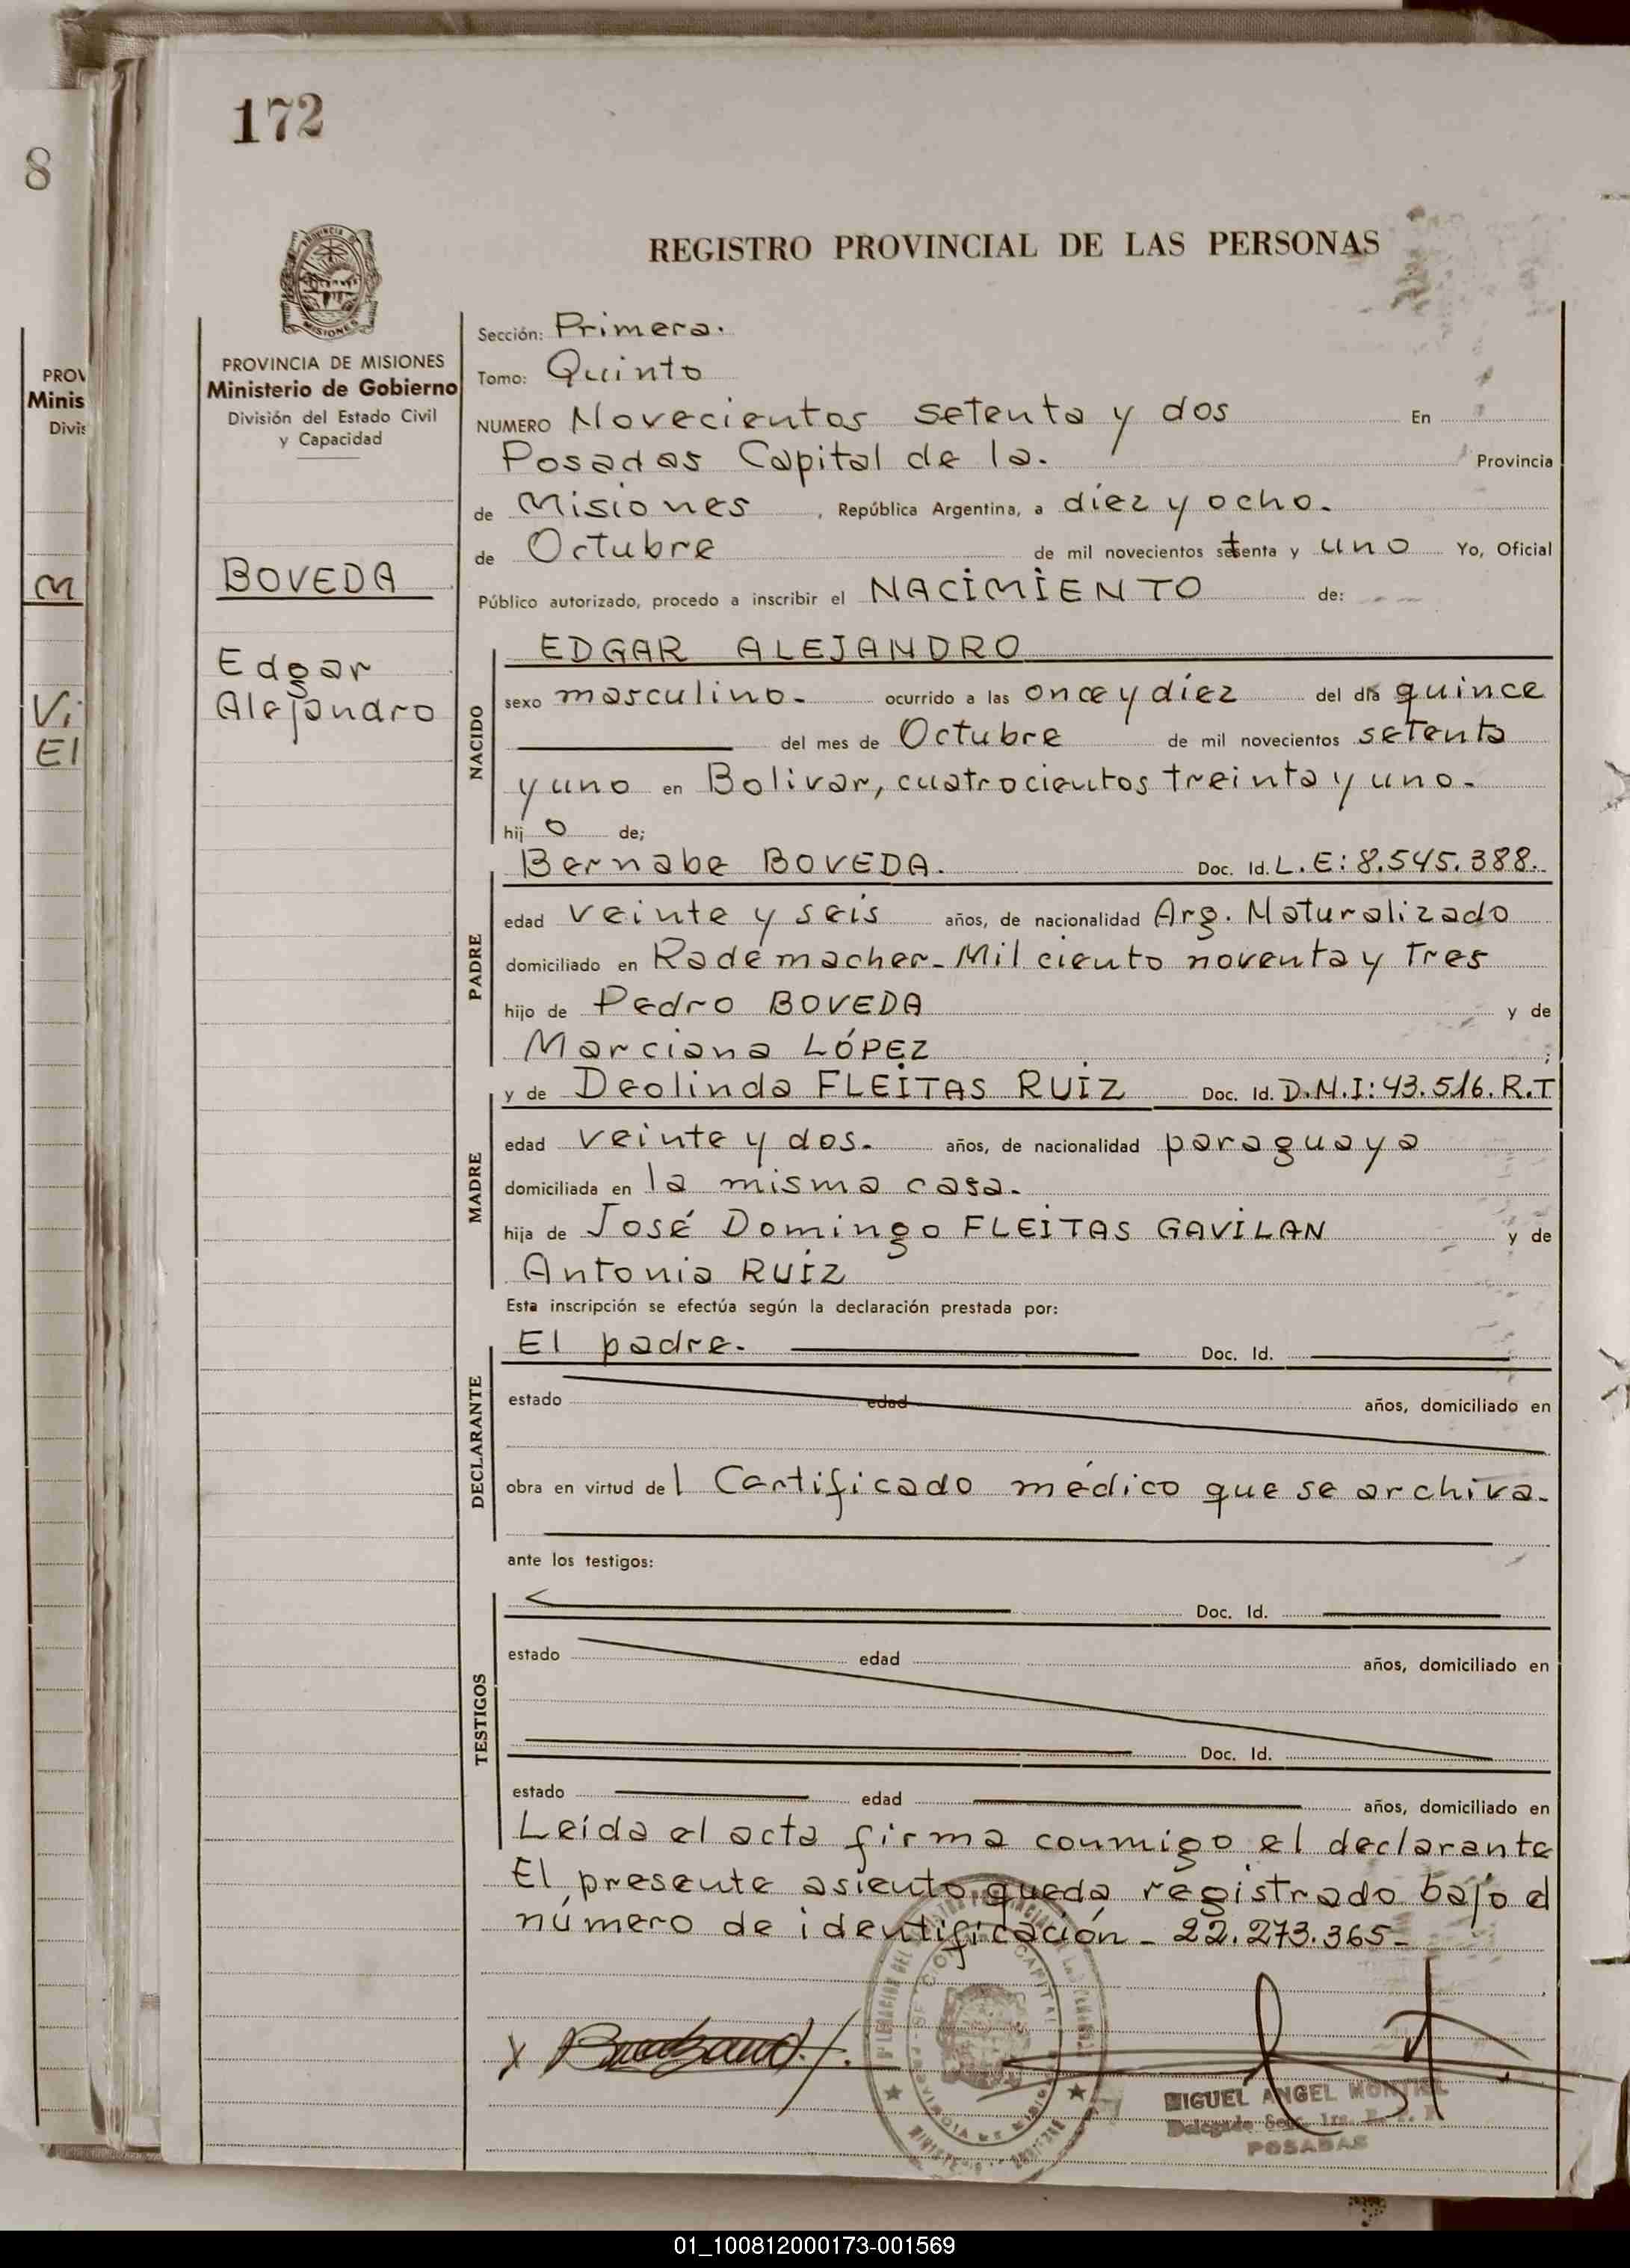 172
8
PROVINCIA DE MISIONES
Ministerio de Gobierno
División del Estado Civil
y Capacidad
BOVEDA
Edgar
Alejandro
REGISTRO PROVINCIAL DE LAS PERSONAS
Sección: Primera.
Tomo: Quinto
NUMERO Novecientos setenta y dos En
Posadas Capital de la. Provincia
de Misiones, República Argentina, a diez y ocho.
de Octubre de mil novecientos setenta y uno Yo, Oficial
Público autorizado, procedo a inscribir el NACIMIENTO de:
EDGAR ALEJANDRO
NACIDO
sexo masculino. ocurrido a las once y diez del día quince
del mes de Octubre de mil novecientos setenta
y uno en Bolivar, cuatrocientos treinta y uno.
hij o de;
Bernabe BOVEDA. Doc. Id. L.E: 8.545.388.
PADRE
edad veinte y seis años, de nacionalidad Arg. Naturalizado
domiciliado en Rademacher-Mil ciento noventa y Tres
hijo de Pedro BOVEDA y de
Marciana LÓPEZ ;
y de Deolinda FLEITAS RUIZ Doc. Id. D.N.I: 43.516. R.T
MADRE
edad veinte y dos. años, de nacionalidad paraguaya
domiciliada en la misma casa.
hija de José Domingo FLEITAS GAVILAN y de
Antonia RUIZ
Esta inscripción se efectúa según la declaración prestada por:
El padre. Doc. Id.
DECLARANTE
estado edad años, domiciliado en
obra en virtud de l Certificado médico que se archiva.
ante los testigos:
Doc. Id.
TESTIGOS
estado edad años, domiciliado en
Doc. Id.
estado edad años, domiciliado en
Leída el acta firma conmigo el declarante
El presente asiento queda registrado bajo el
número de identificación - 22.273.365-
MIGUEL ANGEL MONTIEL
Delegado Secc. 1ra. R. P. P.
POSADAS
01_100812000173-001569